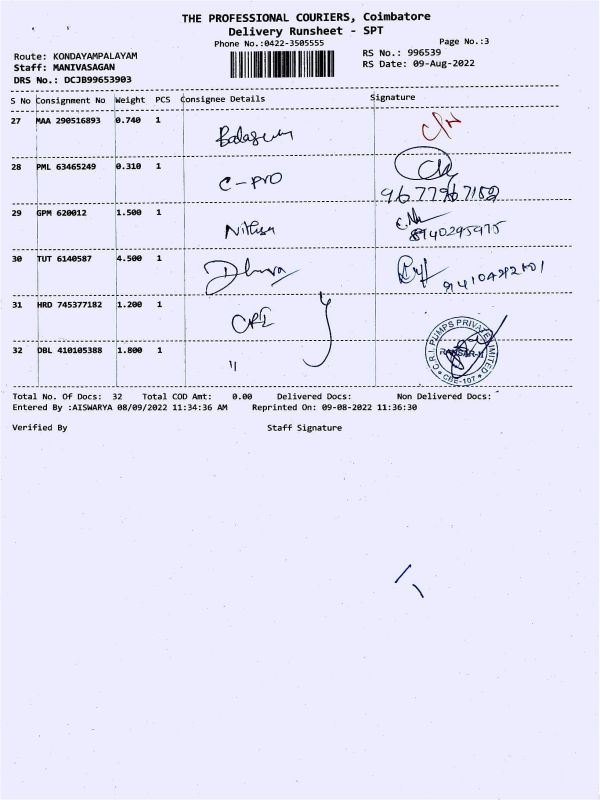 THE PROFESSIONAL COURIERS, Coimbatore
Delivery Runsheet - SPT
Phone No.:0422-3505555 Page No.:3
Route: KONDAYAMPALAYAM RS No.: 996539
Staff: MANIVASAGAN RS Date: 09-Aug-2022
DRS No.: DCJB99653903
S No Consignment No Weight PCS Consignee Details Signature
27 MAA 290516893 0.740 1
28 PML 63465249 0.310 1 C-PRO
9677967152
29 GPM 620012 1.500 1 Nithya
8940295975
30 TUT 6140587 4.500 1
31 HRD 745377182 1.200 1 CRI
32 DBL 410105388 1.800 1 "
C.R.I. PUMPS PRIVATE LIMITED
CBE-107
Total No. Of Docs: 32 Total COD Amt: 0.00 Delivered Docs: Non Delivered Docs:
Entered By :AISWARYA 08/09/2022 11:34:36 AM Reprinted On: 09-08-2022 11:36:30
Verified By Staff Signature